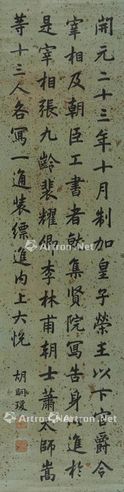 開元二十三年十月制加皇子榮王以下官爵令
宰相及朝臣工書者就集賢院寫告身以進於
是宰相張九齡裴耀卿李林甫朝士蕭太師嵩
等十三人各寫一通裝縹進內上大悅
胡嗣瑗